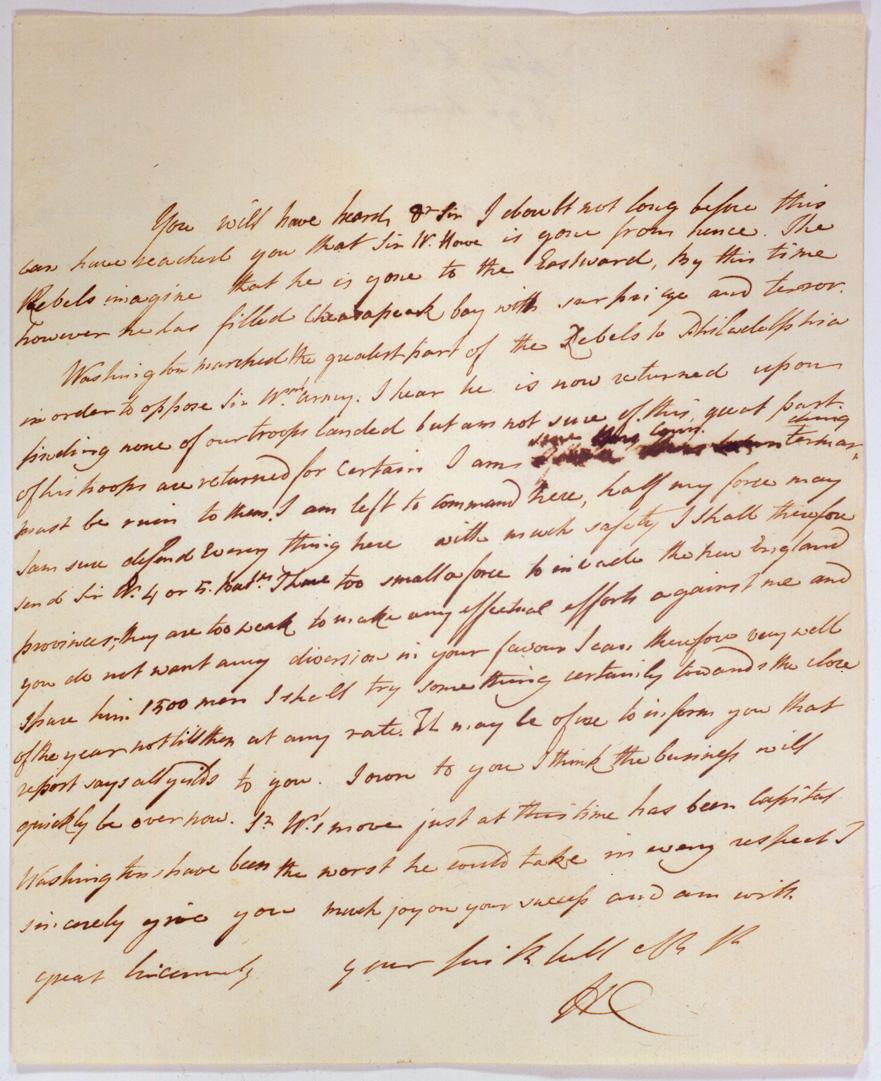 You will have heard, Dr Sir I doubt not long before this
can have reached you that Sir W. Howe is gone from hence. The
Rebels imagine that he is gone to the Eastward, By this time
however he has filled Chesapeak bay with surprize and terror.
Washington marched the greatest part of the Rebels to Philadelphia
in order to oppose Sir Wms army. I hear he is now returned upon
finding none of our troops landed but am not sure of this, great part
of his troops are returned for certain I am sure this counter mar-
ching
must be ruin to them. I am left to command here, half my force may
I am sure defend every thing here with much safety I shall therefore
send Sir W. 4 or 5 Batns I have too small a force to invade the New England
provinces, they are too weak to make any effectual efforts against me and
you do not want any diversion in your favour I can therefore very well
spare him 1500 men I shall try something certainly towards the close
of the year not till then at any rate. It may be of use to inform you that
report says all yeilds to you. I own to you I think the business will
quickly be over now. Sr W's move just at this time has been Capital
Washingtons have been the worst he could take in every respect I
sincerely give you much joy on your success and am with
great Sincerity your
HC